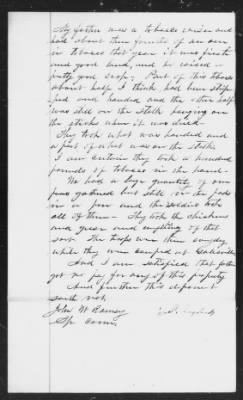 My father was a tobacco raiser and
had about three fourths of an acre
in tobacco that year it was first
and good land, and he raised a
pretty good crop. Part of this tobacco
about half I think had been strip-
ped and handed and the other half
was still on the stalk hanging on
the sticks where it was dried.
They took what was handed and
a part of what was on the stalk.
I am certain they took a hundred
pounds of tobacco in the hand.
We had a large quantity of
peas gathered but still in the pods
in a and the soldiers took
all of them. They took the chickens
and geese and anything of that
sort. The troops were there every day
while they were camped at
And I am satisfied that father
got no pay for any of this property
And further this deponent
saith not.
John W Ramsey
Sp. Comr.